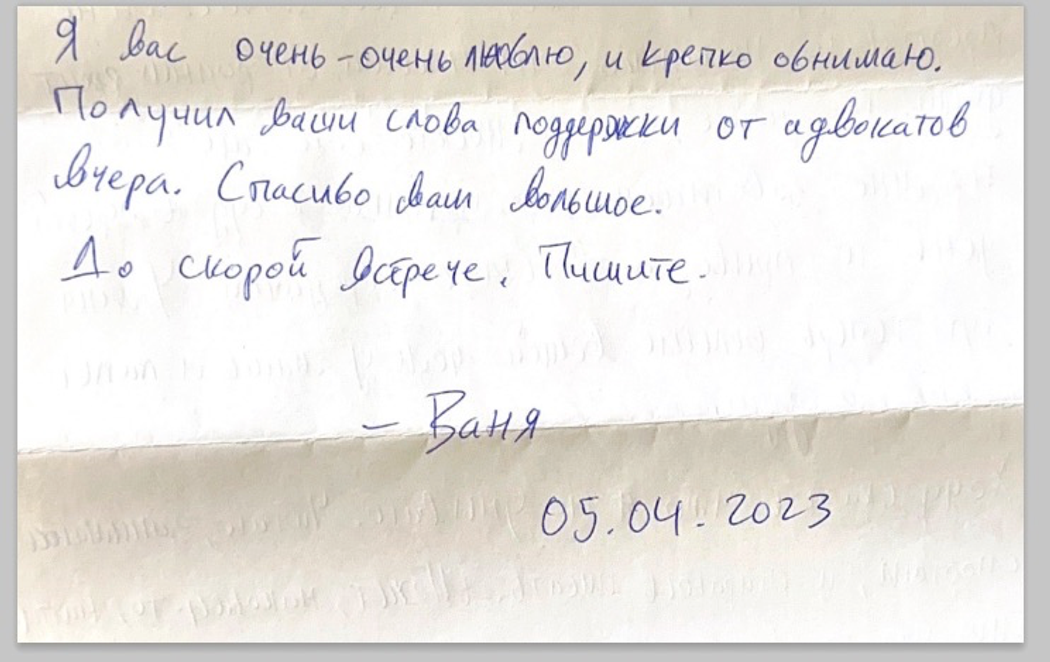 Я вас очень-очень люблю, и крепко обнимаю.
Получил ваши слова поддержки от адвокатов
вчера. Спасибо вам большое.
До скорой встрече. Пишите.
— Ваня
05.04.2023